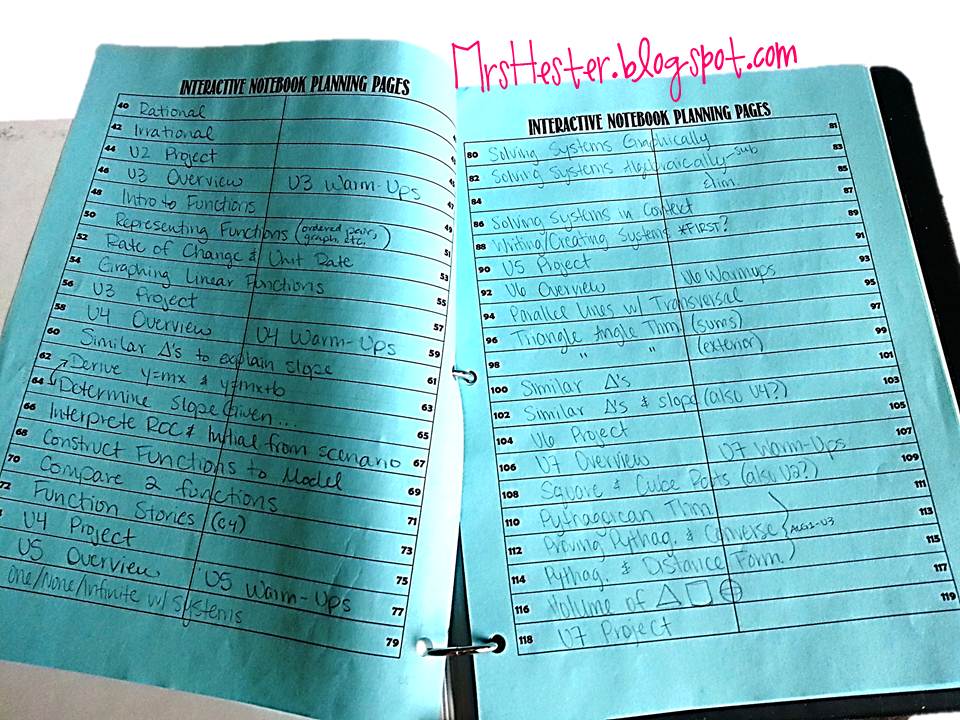 MrsHester.blogspot.com
INTERACTIVE NOTEBOOK PLANNING PAGES
40 Rational
42 Irrational
44 U2 Project
46 U3 Overview U3 Warm-Ups 47
48 Intro to Functions 49
50 Representing Functions (ordered pair, graph, etc.) 51
52 Rate of Change & Unit Rate 53
54 Graphing Linear Functions 55
56 U3 Project 57
58 U4 Overview U4 Warm-Ups 59
60 Similar Δ's to explain slope 61
62 Derive y=mx & y=mx+b 63
64 Determine Slope Given... 65
66 Interprete ROC & Initial from scenario 67
68 Construct Functions to Model 69
70 Compare 2 functions 71
72 Function Stories (C4) 73
U4 Project 75
U5 Overview U5 Warm-Ups 77
One/None/Infinite w/ Systems 79
INTERACTIVE NOTEBOOK PLANNING PAGES
80 Solving Systems Graphically 81
82 Solving Systems Algebraically-Sub 83
84 Elim. 85
86 Solving Systems in Context 87
88 Writing/Creating Systems *FIRST? 89
90 U5 Project 91
92 U6 Overview U6 Warmups 93
94 Parallel Lines w/ Transversal 95
96 Triangle Angle Thm (sums) 97
98 " " (exterior) 99
100 Similar Δ's 101
102 Similar Δ's & slope (also U4?) 103
104 U6 Project 105
106 U7 Overview U7 Warm-Ups 107
108 Square & Cube Roots (also U2?) 109
110 Pythagorean Thm 111
112 Proving Pythag. & Converse ALG1-U3 113
114 Pythag. & Distance Form. 115
116 Volume of 117
118 U7 Project 119